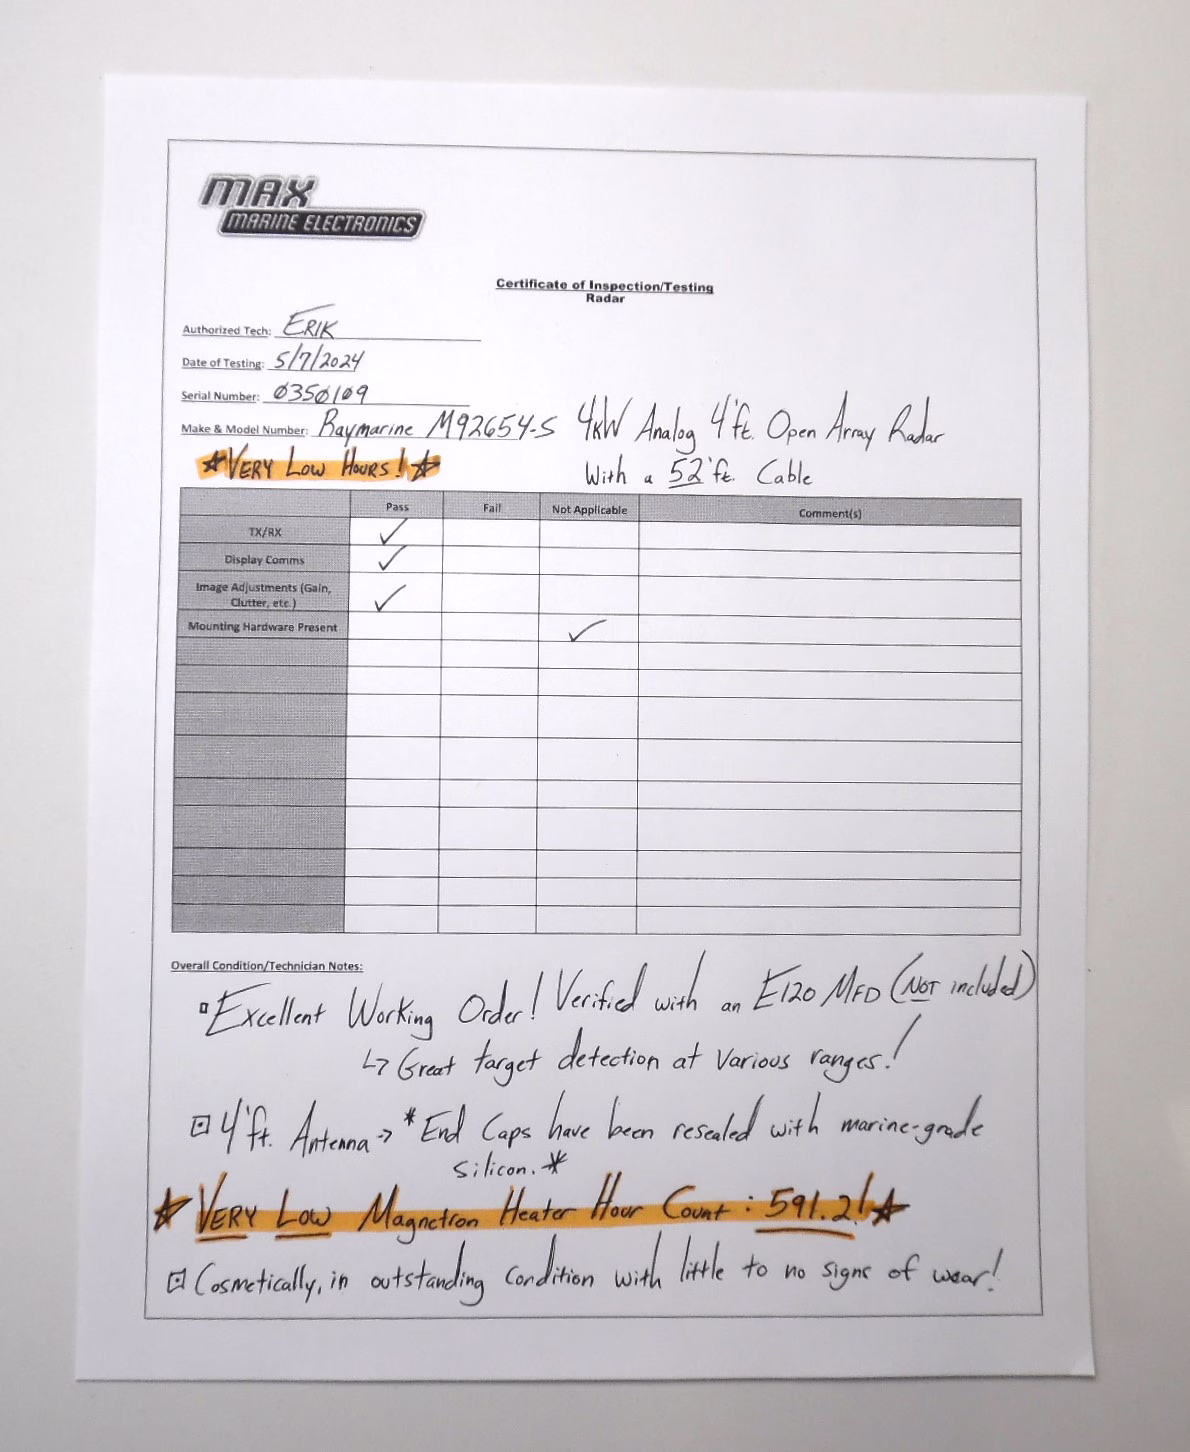 MAX
MARINE ELECTRONICS
Certificate of Inspection/Testing
Radar
Authorized Tech: ERIK
Date of Testing: 5/7/2024
Serial Number: 0350109
Make & Model Number: Raymarine M92654-S 4kW Analog 4'ft. Open Array Radar
VERY LOW HOURS! With a 52'ft. Cable
Pass Fail Not Applicable Comment(s)
TX/RX ✓
Display Comms ✓
Image Adjustments (Gain,
Clutter, etc.) ✓
Mounting Hardware Present ✓
Overall Condition/Technician Notes:
Excellent Working Order! Verified with an E120 MFD (NOT included)
↳ Great target detection at various ranges!
4'ft. Antenna → *End Caps have been resealed with marine-grade
silicon.*
☆ VERY LOW Magnetron Heater Hour Count: 591.2! ☆
Cosmetically, in outstanding condition with little to no signs of wear!